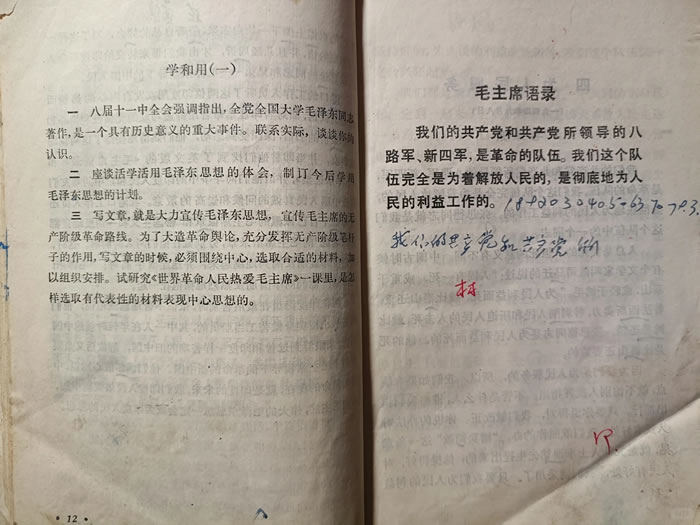 学和用(一)
一 八届十一中全会强调指出，全党全国大学毛泽东同志
著作，是一个具有历史意义的重大事件。联系实际，谈谈你的
认识。
二 座谈活学活用毛泽东思想的体会，制订今后学用
毛泽东思想的计划。
三 写文章，就是大力宣传毛泽东思想，宣传毛主席的无
产阶级革命路线。为了大造革命舆论，充分发挥无产阶级笔杆
子的作用，写文章的时候，必须围绕中心，选取合适的材料，加
以组织安排。试研究《世界革命人民热爱毛主席》一课里，是怎
样选取有代表性的材料表现中心思想的。
· 12 ·
毛主席语录
我们的共产党和共产党所领导的八
路军、新四军，是革命的队伍。我们这个队
伍完全是为着解放人民的，是彻底地为人
民的利益工作的。
我们的共产党和共产党所
林